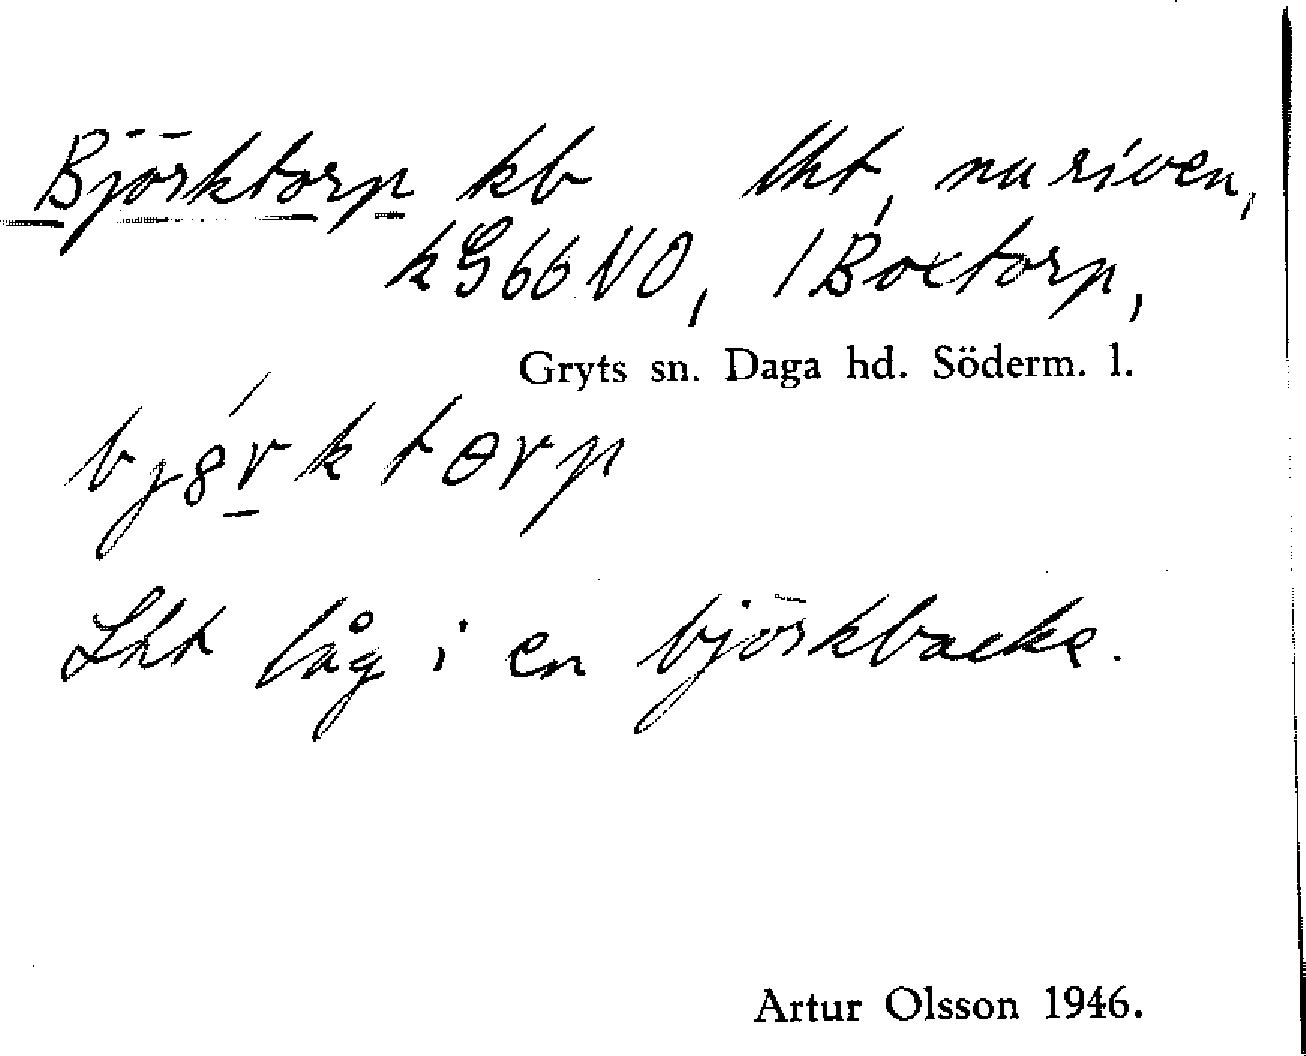 Björktorp kb lht, nu riven,
k G66 NO, / Boxtorp,
Gryts sn. Daga hd. Söderm. l.
Lht låg i en björkbacke.
Artur Olsson 1946.